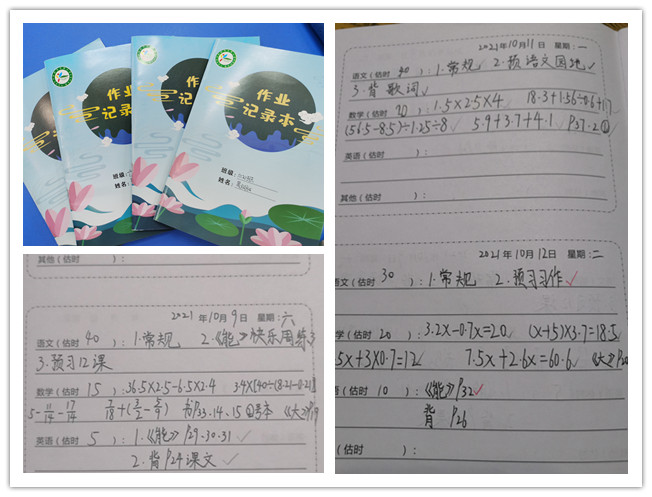 作业
记录本
作业
记录本
作业
记录本
班级：
姓名：
2021年10月11日 星期：一
语文（估时 40 ）：1.常规 2.预语文园地
3.背歌词
数学（估时 20 ）：1.5×2.5×4 18.3+1.56÷0.6+1.7
(56.5-8.5)÷1.25÷8 5.9+3.7+4.1 P37.2①
英语（估时 ）：
其他（估时 ）：
其他（估时 ）：
2021年10月9日 星期：六
语文（估时 40 ）：1.常规 2.《能》快乐周练3
3.预习12课
数学（估时 15 ）：36.5×2.5-6.5×2.4 3.4×[40÷(8.21-0.21)]
5-11/14-17/14 书P33.14.15 《大》P19
英语（估时 5 ）：1.《能》P29.30.31
2.背P24课文
2021年10月12日 星期：二
语文（估时 30 ）：1.常规 2.预习习作
学（估时 20 ）：3.2x-0.7x=20 (x+5)×3.7=18.5
5x+3×0.7=12 7.5x+2.6x=60.6 《大》P20
语（估时 10 ）：《能》P32
背 P26
（估时 ）：